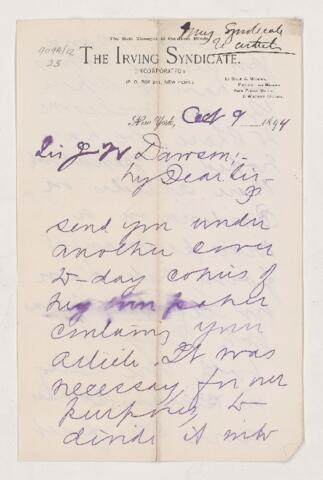 The Best Thought of the Best Minds.
Irving Syndicate
W article
909A/12
25
THE IRVING SYNDICATE.
(INCORPORATED)
P. O. BOX NEW YORK
New York, Oct 9 1894
Sir J W Dawson,-
My Dear Sir -
I
send you under
another cover
to-day copies of
paper
containing your
article. It was
necessary for our
purposes to
divide it into